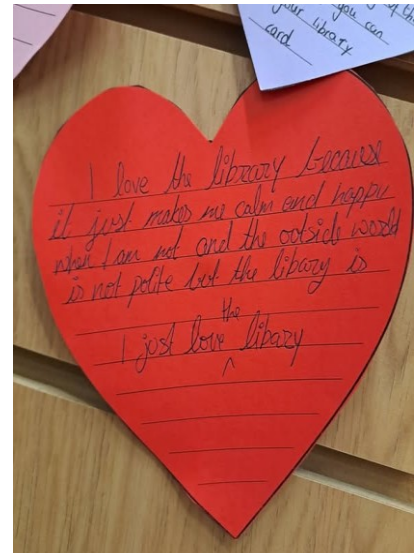 g of th
you can
your library
card
I love the library because
it just makes me calm and happy
when I am not and the ootside world
is not polite but the library is
the
I just love ^ libary